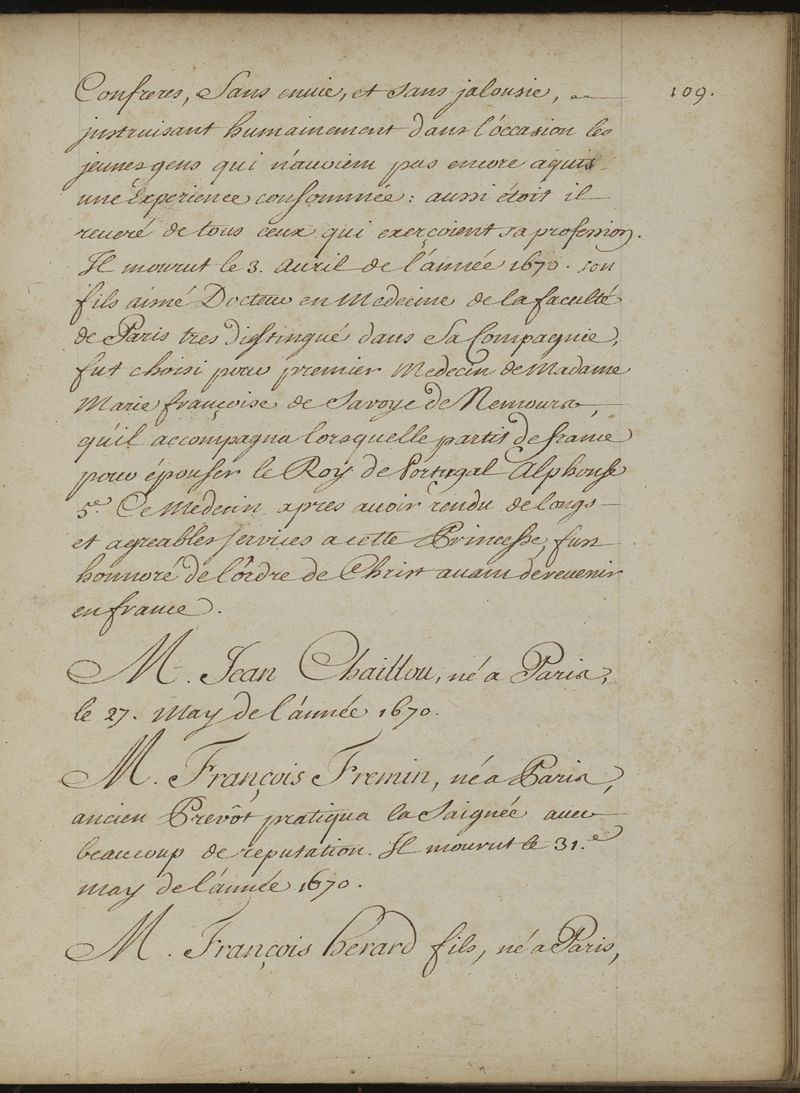 109.
Confreres, Sans envie, et sans jalousie,
instruisant humainement dans l'óccasion les
jeunes gens qui n'avoient pas encore aquis
une Experience consommée : aussi étoit il
reveré de tous ceux qui exerçoient sa profession.
Il mourut le 3. avril de l'année 1670. son
fils aimé Docteur en Medecine de la faculté
de Paris tres Distingué dans Sa Compagnie,
fut choisi pour premier Medecin de Madame
Marie françoise de Savoye de Nemours,
qu'il accompagna lorsquelle partit de france
pour épouser le Roy de Portugal Alphonse
5.e Ce Medecin apres avoir rendu de longs
et agreables services a cette Princesse, fut
honnoré de l'ôrdre de Christ avant de revenir
en france.
M. Jean Chaillou, né a Paris,
le 27. May de l'ánnée 1670.
M. François Fremin, né a Paris,
ancien Prevôt pratiqua la Saignée avec
beaucoup de reputation. Il mourut le 31.e
may de l'ánnée 1670.
M. François herard fils, né a Paris,